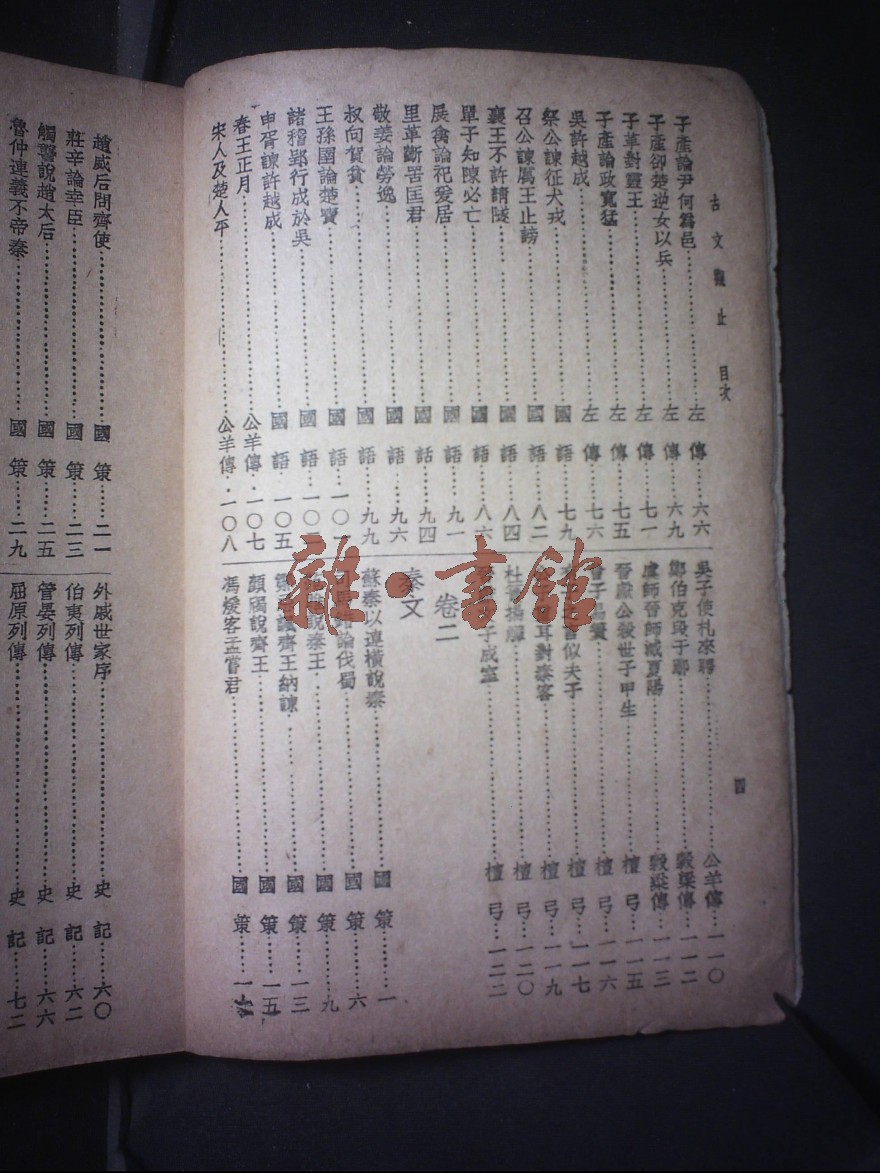 古文觀止 目次
子產論尹何為邑……左傳……六六
子產卻楚逆女以兵……左傳……六九
子革對靈王……左傳……七一
子產論政寬猛……左傳……七五
吳許越成……左傳……七六
祭公諫征犬戎……國語……七九
召公諫厲王止謗……國語……八二
襄王不許請隧……國語……八四
單子知陳必亡……國語……八六
展禽論祀爰居……國語……九一
里革斷罟匡君……國語……九四
敬姜論勞逸……國語……九六
叔向賀貧……國語……九九
王孫圉論楚寶……國語……一〇一
諸稽郢行成於吳……國語……一〇二
申胥諫許越成……國語……一〇五
春王正月……公羊傳‧一〇七
宋人及楚人平……公羊傳‧一〇八
吳子使札來聘……公羊傳……一一〇
鄭伯克段于鄢……穀梁傳……一一二
虞師晉師滅夏陽……穀梁傳……一一三
晉獻公殺世子申生……檀弓……一一五
曾子易簀……檀弓……一一六
似夫子……檀弓……一一七
耳對秦客……檀弓……一一九
杜蕢揚觶……檀弓……一二〇
子成室……檀弓……一二二
卷二
秦文
蘇秦以連橫說秦……國策……一
論伐蜀……國策……六
說秦王……國策……九
齊王納諫……國策……一三
顏斶說齊王……國策……一五
馮煖客孟嘗君……國策……一
四
趙威后問齊使……國策……二一
莊辛論幸臣……國策……二三
觸讋說趙太后……國策……二五
魯仲連義不帝秦……國策……二九
外戚世家序……史記……六〇
伯夷列傳……史記……六二
管晏列傳……史記……六六
屈原列傳……史記……七二
雜·書館